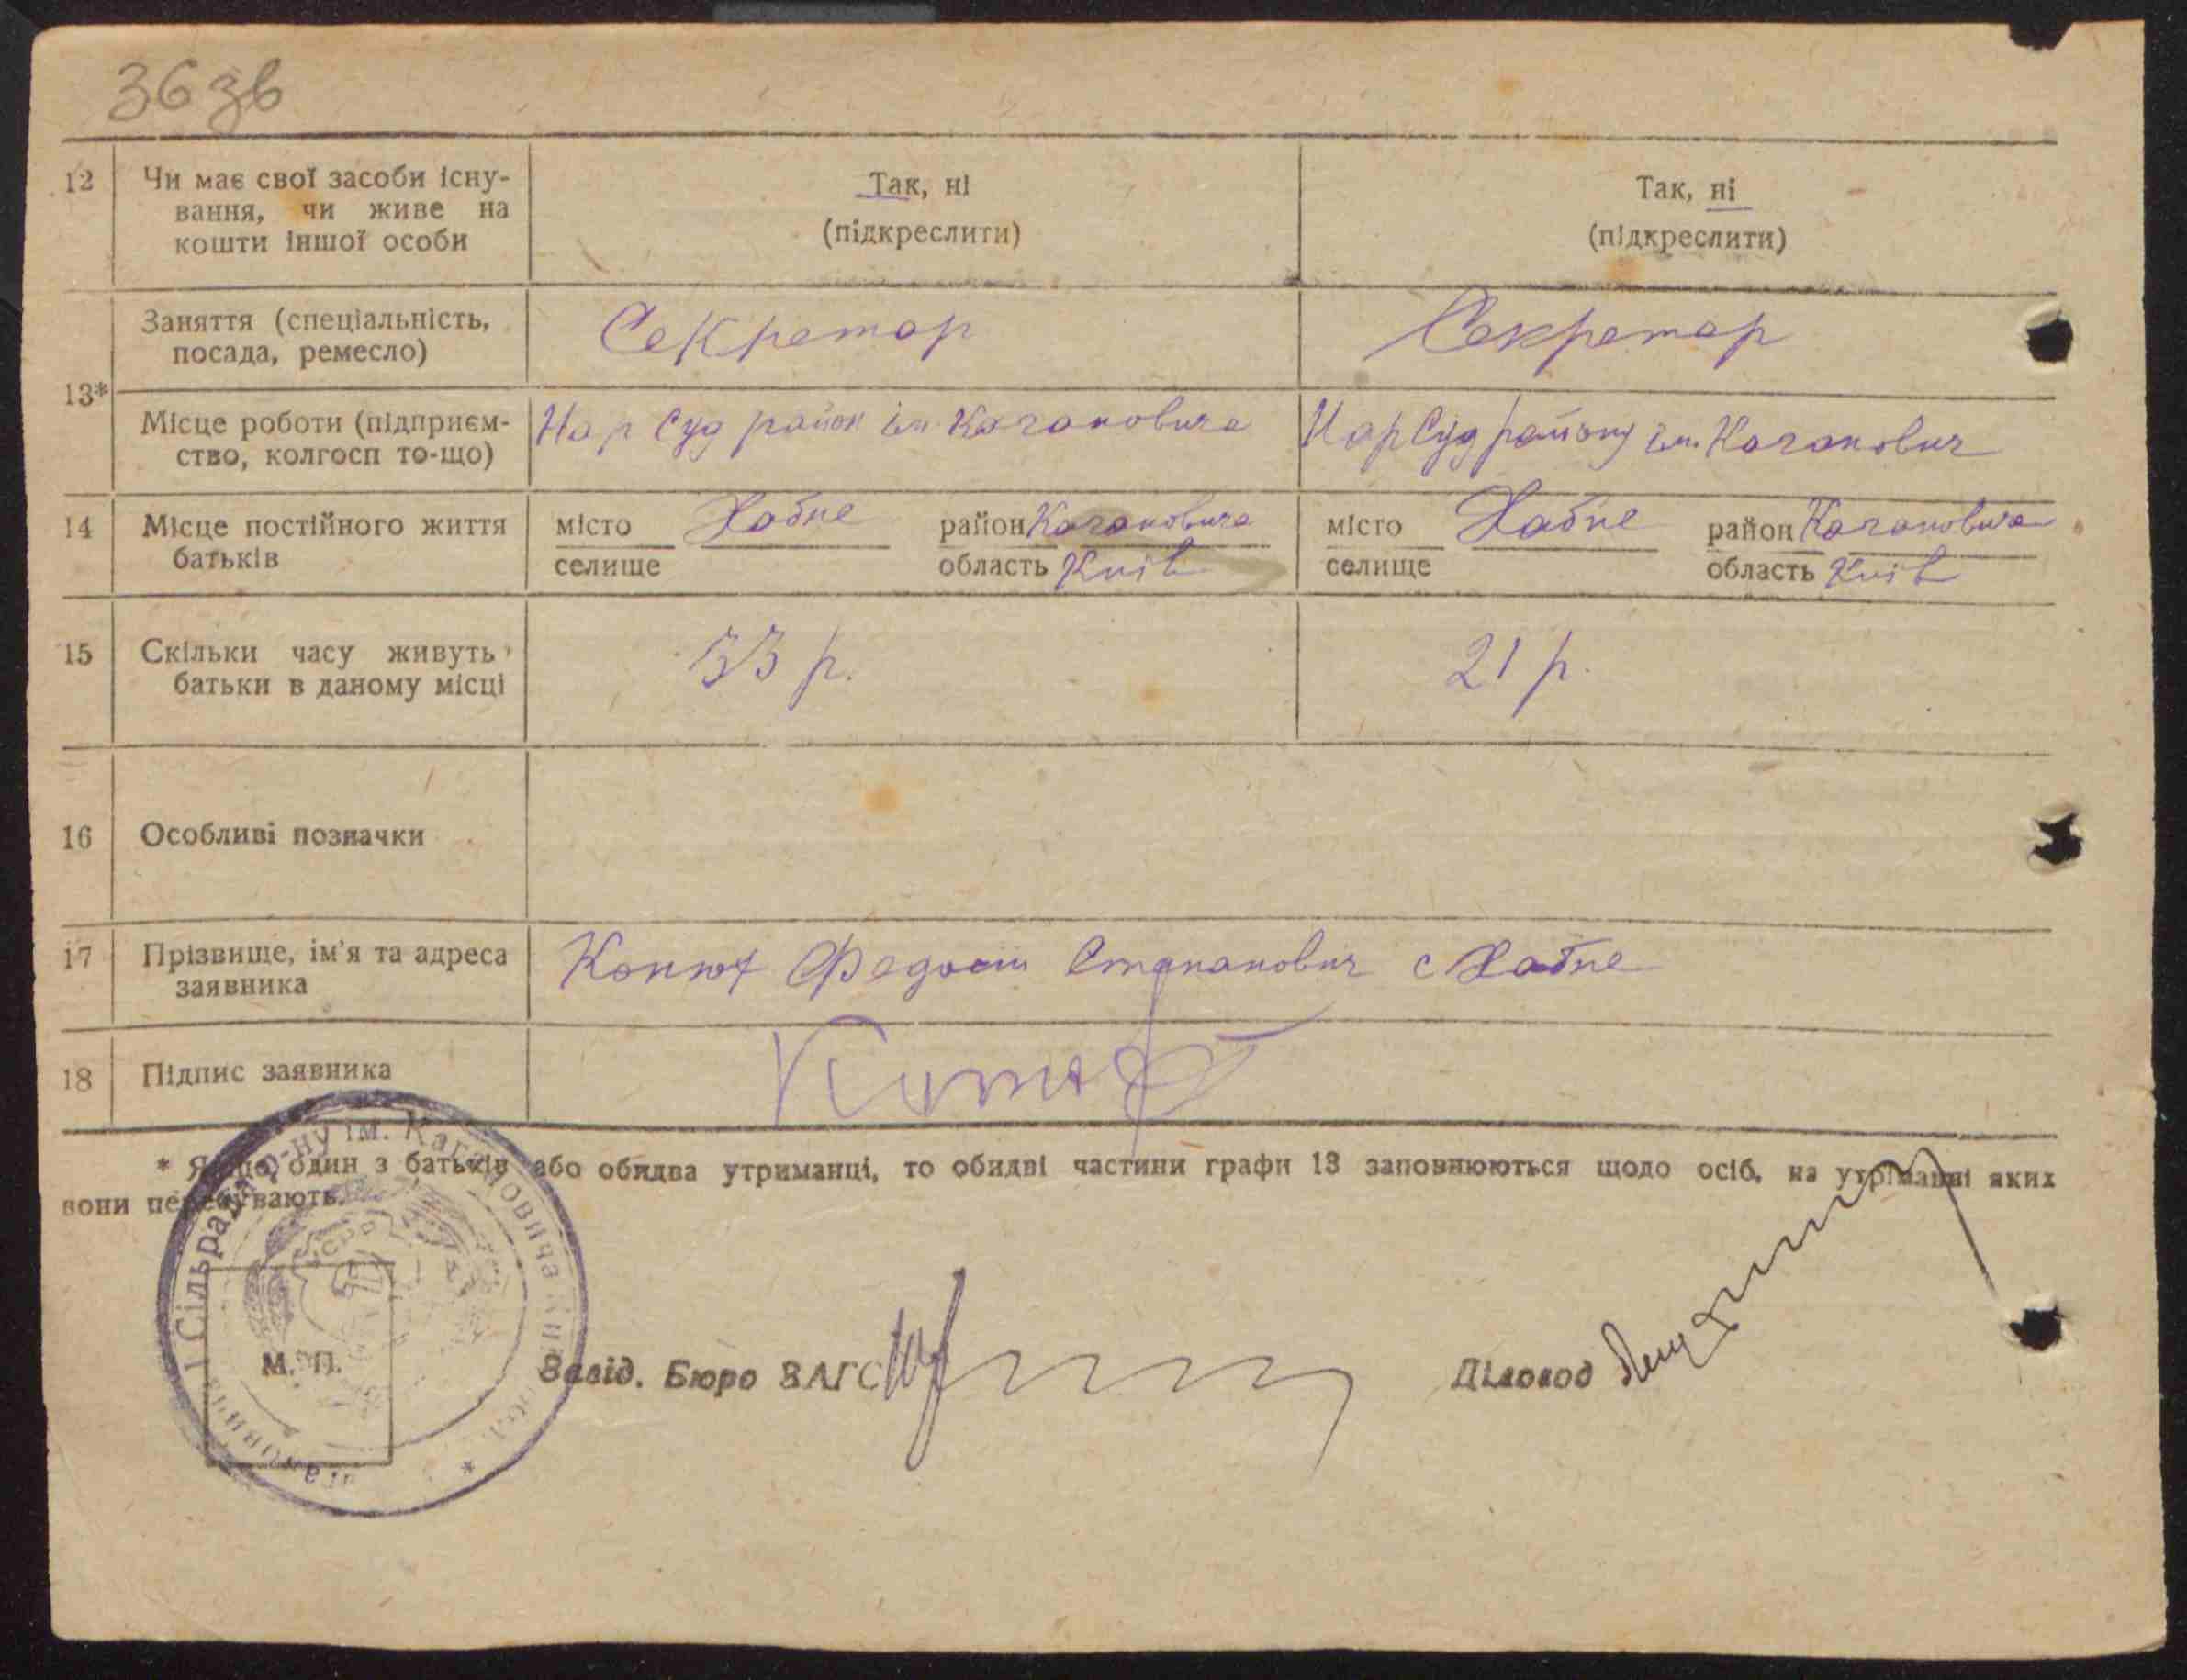 36 зв
12 Чи має свої засоби існу-
вання, чи живе на
кошти іншої особи
Так, ні
(підкреслити)
Так, ні
(підкреслити)
13*
Заняття (спеціальність,
посада, ремесло)
Секретар
Секретар
Місце роботи (підприєм-
ство, колгосп то-що)
Нар Суд район ім Кагановича
Нар Суд району ім. Каганович
14 Місце постійного життя
батьків
місто Хабне район Кагановича
селище область Київ
місто Хабне район Кагановича
селище область Київ
15 Скільки часу живуть
батьки в даному місці
33 р.
21 р.
16 Особливі позначки
17 Прізвище, ім'я та адреса
заявника
Федось Степанович с Хабне
18 Підпис заявника
* Якщо один з батьків або обидва утриманці, то обидві частини графи 13 заповнюються щодо осіб, на утриманні яких
вони перебувають.
Сільрада р-ну ім. Кагановича
УСРР
М. П.
Завід. Бюро ЗАГС
Діловод